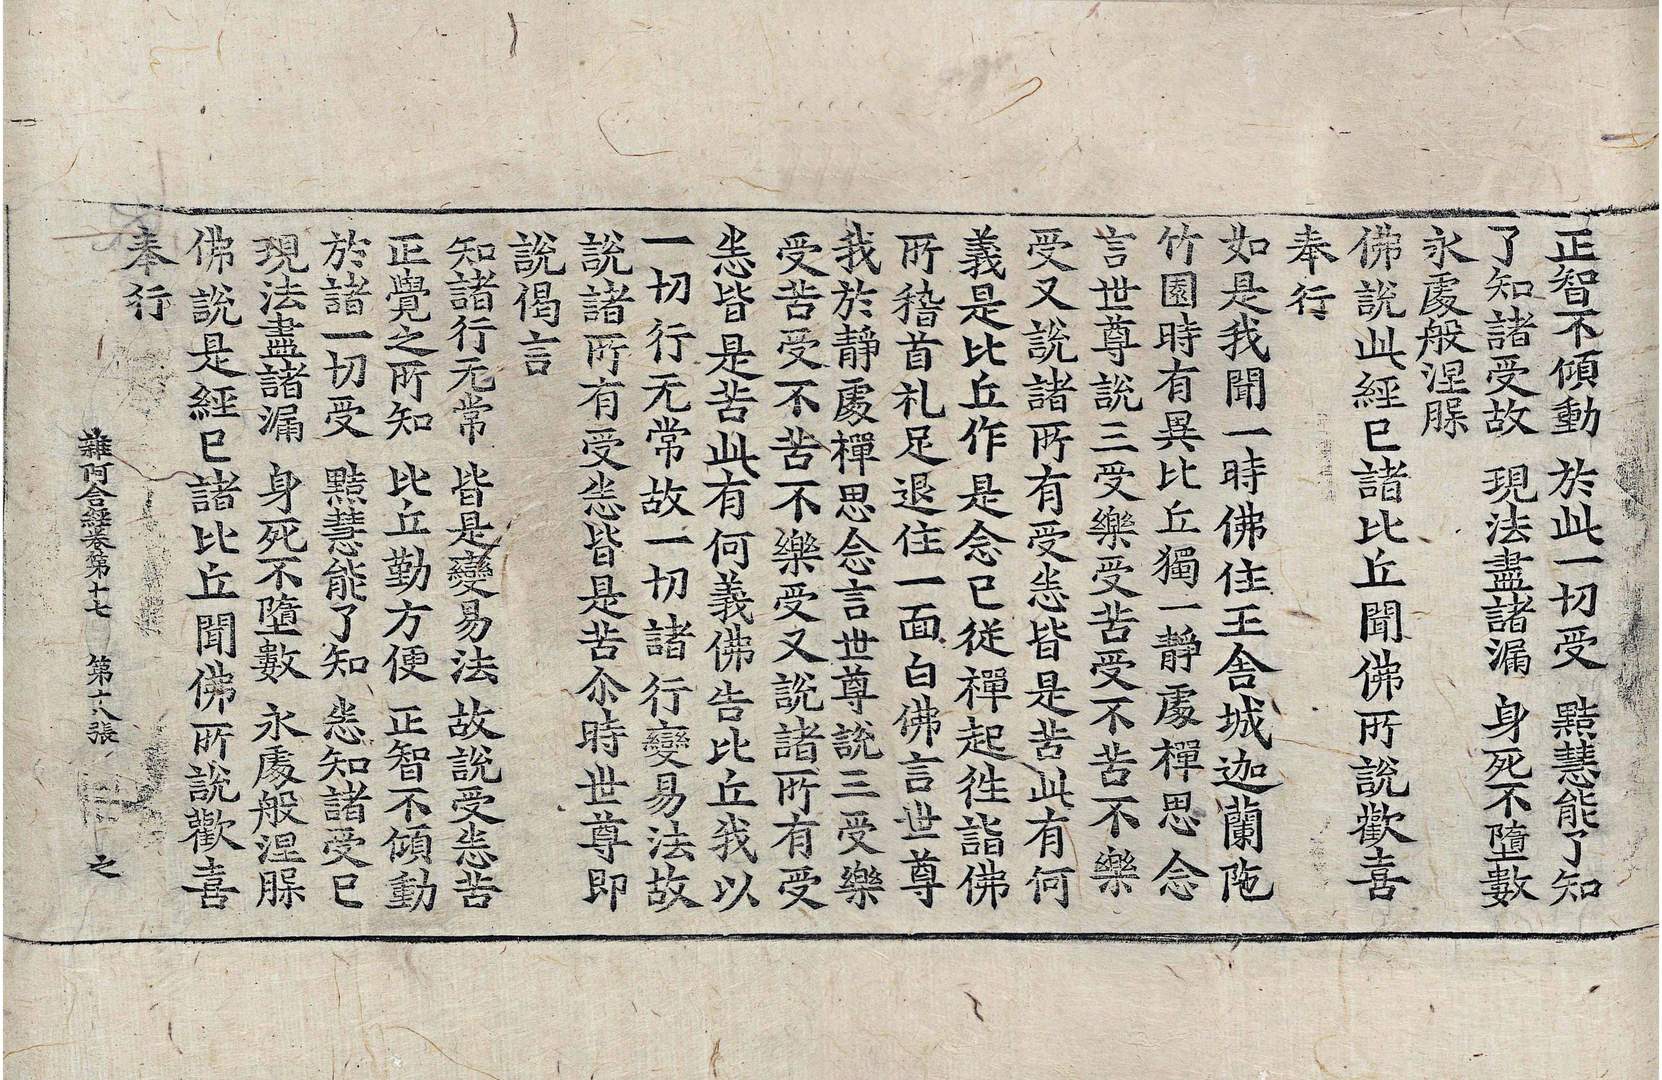 正智不傾動　於此一切受　黠慧能了知
了知諸受故　現法盡諸漏　身死不墮數
永處般涅䏶
佛說此經已諸比丘聞佛所說歡喜
奉行
如是我聞一時佛住王舍城迦蘭陁
竹園時有異比丘獨一靜處禪思念
言世尊說三受樂受苦受不苦不樂
受又說諸所有受悉皆是苦此有何
義是比丘作是念已從禪起徃詣佛
所稽首礼足退住一面白佛言世尊
我於靜處禪思念言世尊說三受樂
受苦受不苦不樂受又說諸所有受
悉皆是苦此有何義佛告比丘我以
一切行无常故一切諸行變易法故
說諸所有受悉皆是苦尒時世尊即
說偈言
知諸行无常　皆是變易法　故說受悉苦
正覺之所知　比丘勤方便　正智不傾動
於諸一切受　黠慧能了知　悉知諸受已
現法盡諸漏　身死不墮數　永處般涅䏶
佛說是經已諸比丘聞佛所說歡喜
奉行
雜阿含經卷第十七　第十八張　之